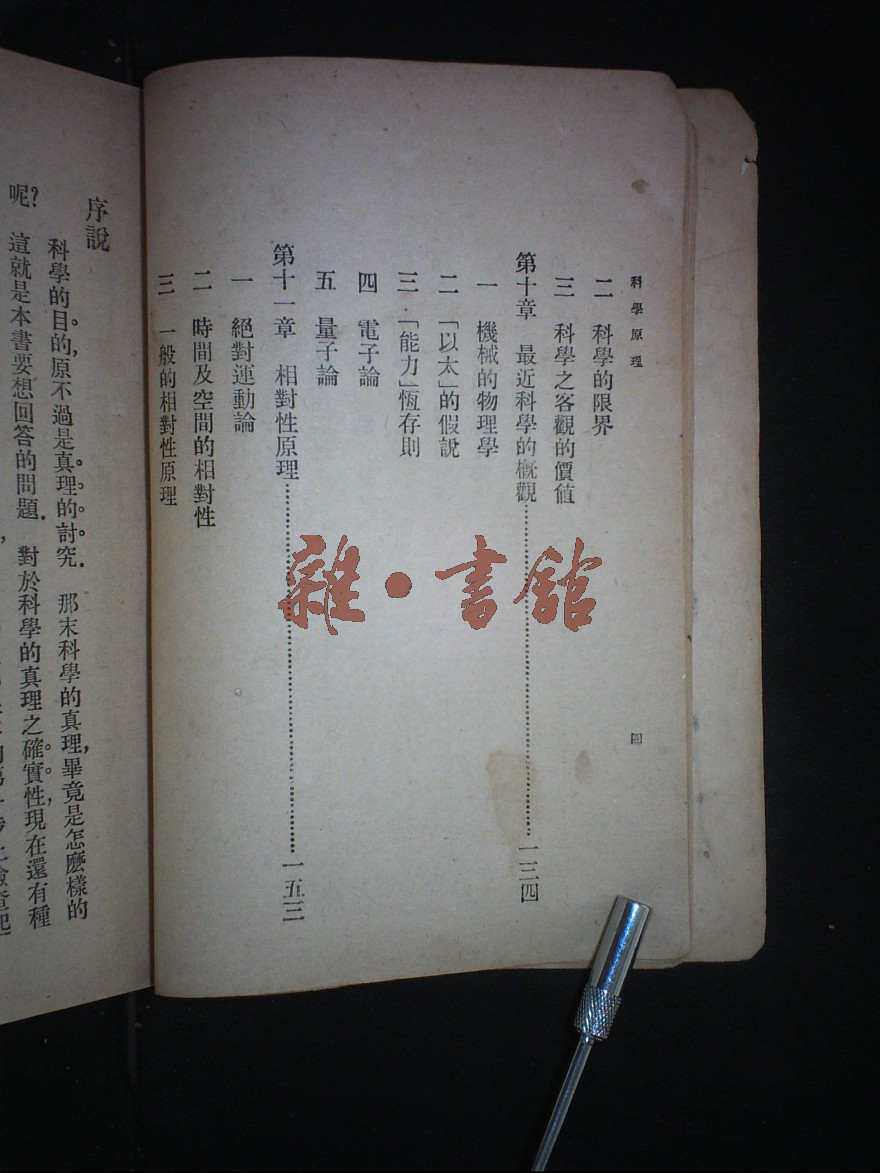 科學原理
二 科學的限界
三 科學之客觀的價值
第十章 最近科學的概觀……一三四
一 機械的物理學
二 「以太」的假說
三 「能力」恆存則
四 電子論
五 量子論
第十一章 相對性原理……一五三
一 絕對運動論
二 時間及空間的相對性
三 一般的相對性原理
四
雜·書館
序說
科學的目的,原不過是真理的討究. 那末科學的真理,畢竟是怎麼樣的
呢? 這就是本書要想回答的問題. 對於科學的真理之確實性,現在還有種